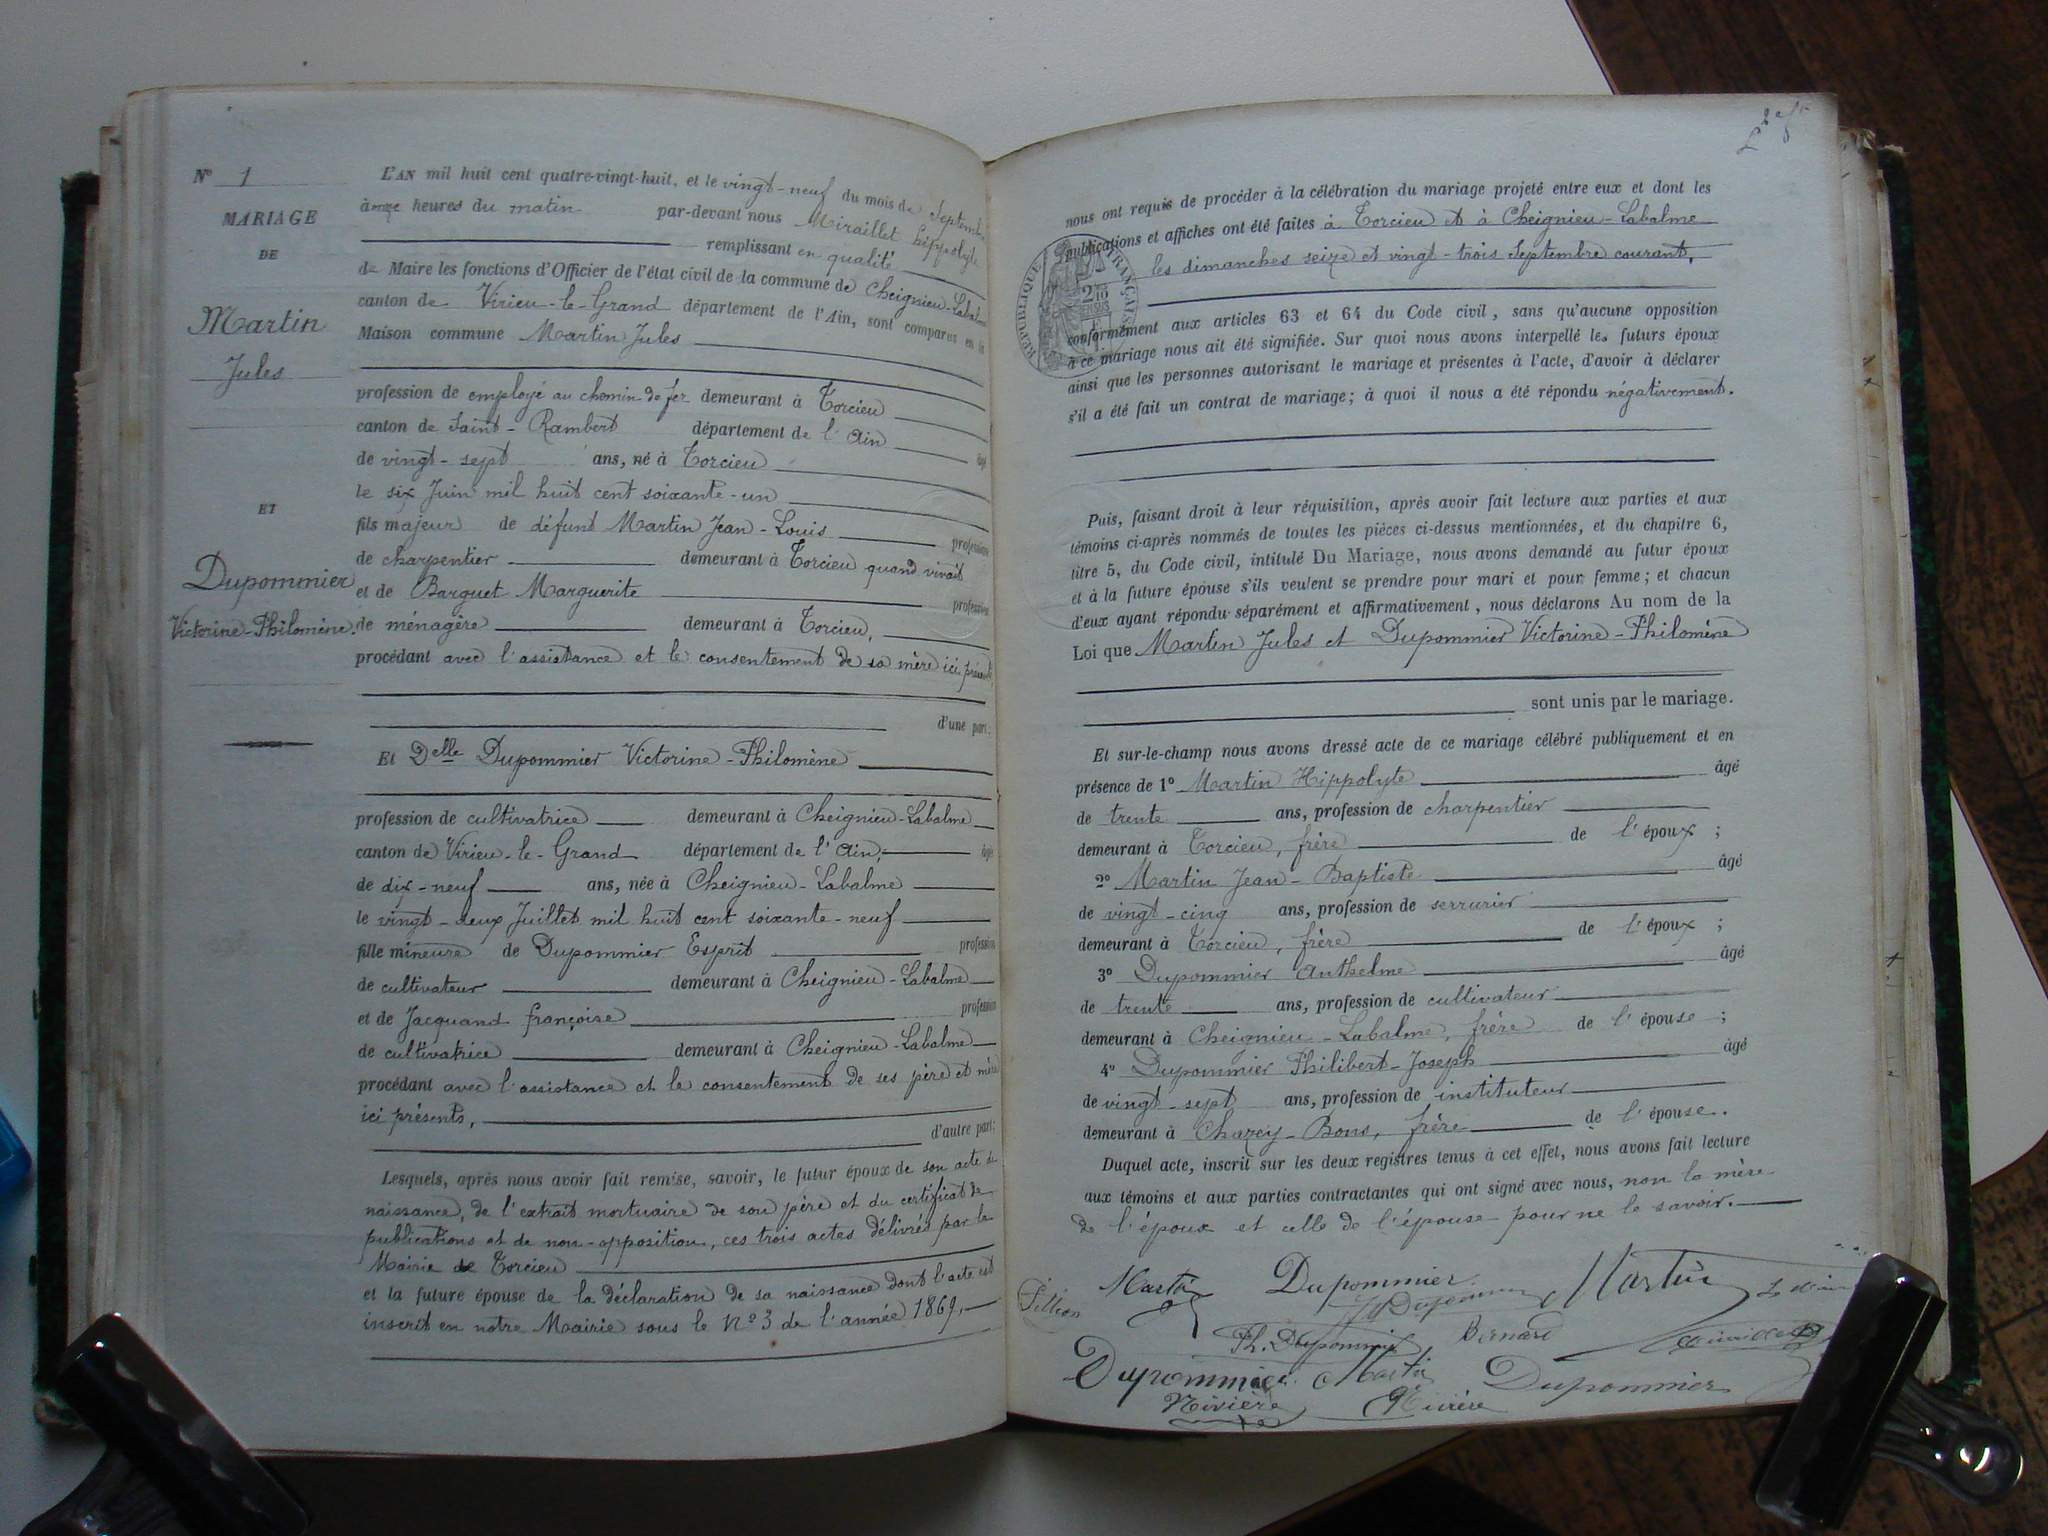 N° 1
MARIAGE
DE
Martin
Jules
ET
Dupommier
Victorine-Philomène.
L'AN mil huit cent quatre-vingt-huit, et le vingt-neuf du mois de Septembre
à onze heures du matin par-devant nous Miraillet hippolyte
remplissant en qualité
de Maire les fonctions d'Officier de l'état civil de la commune de Cheignieu-Labalme
canton de Virieu-le-Grand département de l'Ain, sont comparus en la
Maison commune Martin Jules
profession de employé au chemin de fer demeurant à Torcieu
canton de Saint-Rambert département de l'Ain âgé
de vingt-sept ans, né à Torcieu
le six Juin mil huit cent soixante-un
fils majeur de défunt Martin Jean-Louis profession
de charpentier demeurant à Torcieu quand vivait
et de Barguet Marguerite profession
de ménagère demeurant à Torcieu,
procédant avec l'assistance et le consentement de sa mère ici présente
d'une part;
Et Delle Dupommier Victorine-Philomène
profession de cultivatrice demeurant à Cheignieu-Labalme
canton de Virieu-le-Grand département de l'Ain, âgé
de dix-neuf ans, née à Cheignieu-Labalme
le vingt-deux Juillet mil huit cent soixante-neuf
fille mineure de Dupommier Esprit profession
de cultivateur demeurant à Cheignieu-Labalme
et de Jacquand françoise profession
de cultivatrice demeurant à Cheignieu-Labalme
procédant avec l'assistance et le consentement de ses père et mère
ici présents,
d'autre part;
Lesquels, après nous avoir fait remise, savoir, le futur époux de son acte de
naissance, de l'extrait mortuaire de son père et du certificat de
publications et de non-opposition, ces trois actes délivrés par la
Mairie de Torcieu
et la future épouse de la déclaration de sa naissance dont l'acte est
inscrit en notre Mairie sous le N° 3 de l'année 1869,
nous ont requis de procéder à la célébration du mariage projeté entre eux et dont les
publications et affiches ont été faites à Torcieu et à Cheignieu-Labalme
les dimanches seize et vingt-trois Septembre courant,
RÉPUBLIQUE FRANÇAISE
conformément aux articles 63 et 64 du Code civil, sans qu'aucune opposition
à ce mariage nous ait été signifiée. Sur quoi nous avons interpellé les futurs époux
ainsi que les personnes autorisant le mariage et présentes à l'acte, d'avoir à déclarer
s'il a été fait un contrat de mariage; à quoi il nous a été répondu négativement.
Puis, faisant droit à leur réquisition, après avoir fait lecture aux parties et aux
témoins ci-après nommés de toutes les pièces ci-dessus mentionnées, et du chapitre 6,
titre 5, du Code civil, intitulé Du Mariage, nous avons demandé au futur époux
et à la future épouse s'ils veulent se prendre pour mari et pour femme; et chacun
d'eux ayant répondu séparément et affirmativement, nous déclarons Au nom de la
Loi que Martin Jules et Dupommier Victorine-Philomène
sont unis par le mariage.
Et sur-le-champ nous avons dressé acte de ce mariage célébré publiquement et en
présence de 1° Martin Hippolyte âgé
de trente ans, profession de charpentier
demeurant à Torcieu, frère de l'époux;
2° Martin Jean-Baptiste âgé
de vingt-cinq ans, profession de serrurier
demeurant à Torcieu, frère de l'époux;
3° Dupommier Anthelme âgé
de trente ans, profession de cultivateur
demeurant à Cheignieu-Labalme, frère de l'épouse;
4° Dupommier Philibert-Joseph âgé
de vingt-sept ans, profession de instituteur
demeurant à Chazey-Bons, frère de l'épouse.
Duquel acte, inscrit sur les deux registres tenus à cet effet, nous avons fait lecture
aux témoins et aux parties contractantes qui ont signé avec nous, non la mère
de l'époux et celle de l'épouse pour ne le savoir.
Martin Dupommier Martin
Dupommier
Ph. Dupommier Bernard
Dupommier Martin Dupommier
Rivière Rivière